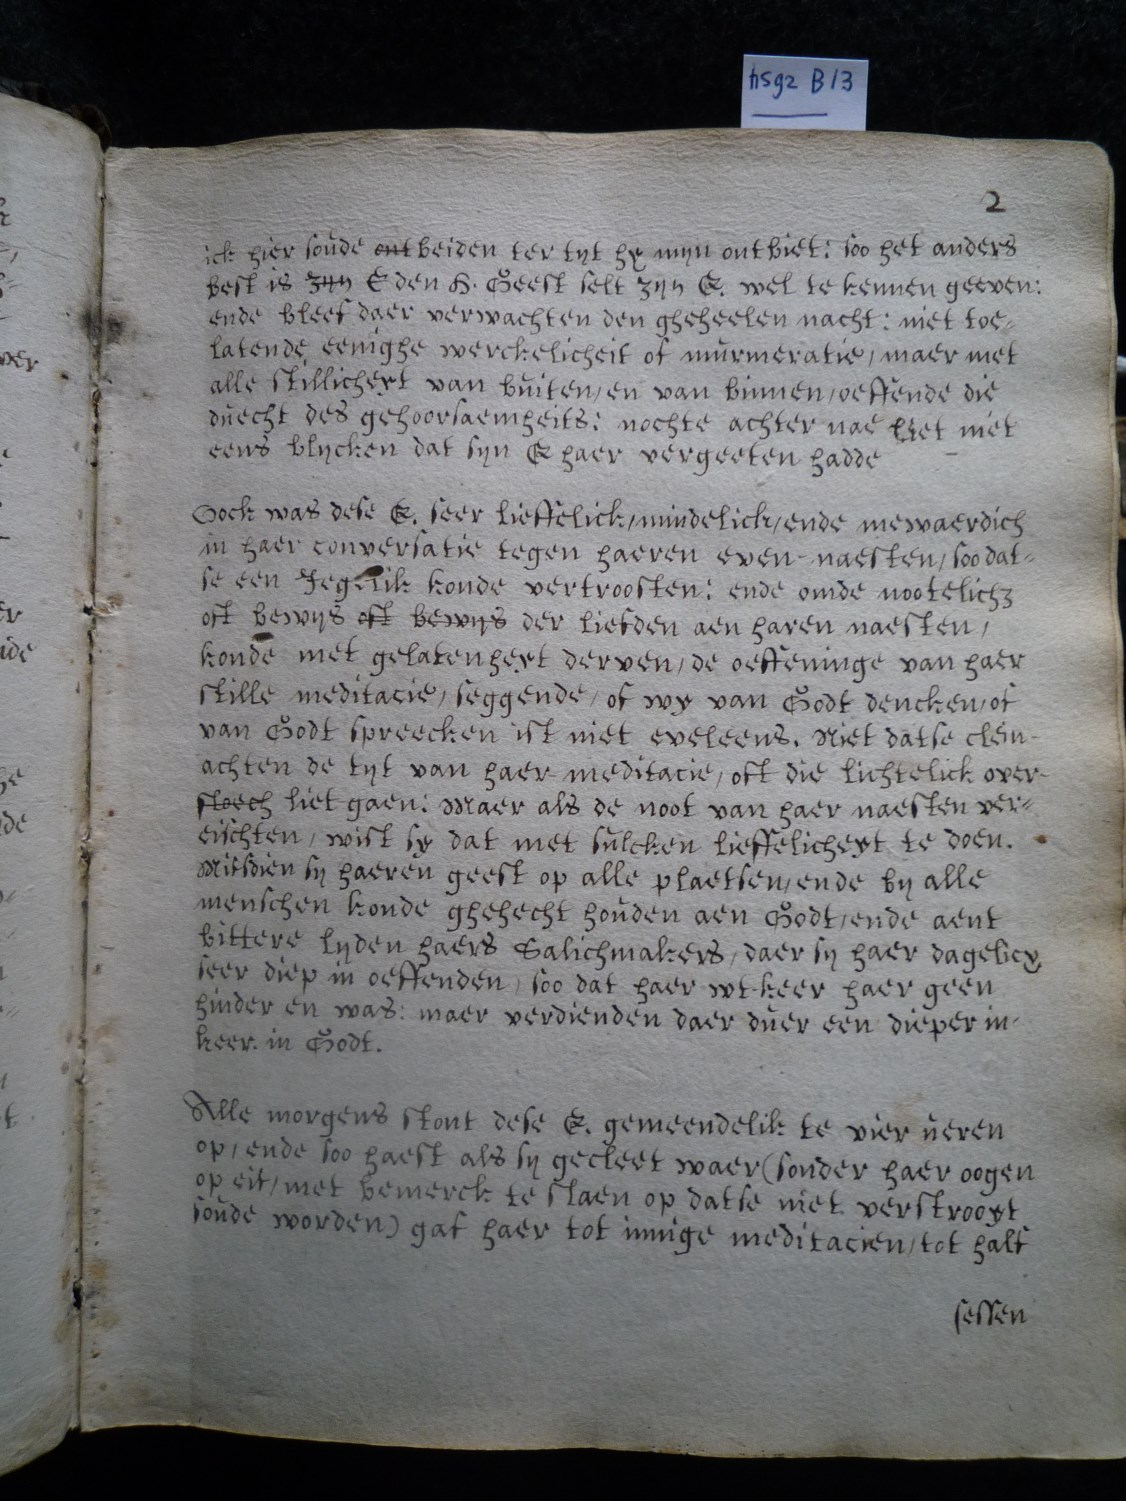 hsgz B13
2
ick hier soude ontbeiden ter tyt hy myn ontbiet: soo het anders
best is zyn E den H. Geest selt zyn E. wel te kennen geeven:
ende bleef daer verwachten den gheheelen nacht: niet toe-
latende eenighe werckelicheit of murmeratie, maer met
alle stillicheyt van buiten, en van binnen, oeffende die
duecht des gehoorsaemheits: nochte achter nae liet niet
eens blycken dat syn E haer vergeeten hadde
Oock was dese E. seer lieffelick, mindelick, ende mewaerdich
in haer conversatie tegen haeren even-naesten, soo dat-
se een Jegelik konde vertroosten: ende omde nootelich3
oft bewijs oft bewijs der liefden aen haren naesten,
konde met gelatenheyt derven, de oeffeninge van haer
stille meditacie, seggende, of wy van Godt dencken, of
van Godt spreecken ist niet eveleens. Niet datse clein-
achten de tyt van haer meditacie, oft die lichtelick over-
sloech liet gaen: Maer als de noot van haer naesten ver-
eischten, wist sy dat met sulcken lieffelicheyt te doen.
Mitsdien sy haeren geest op alle plaetsen, ende by alle
menschen konde ghehecht houden aen Godt, ende aent
bittere lyden haers Salichmakers, daer sy haer dagelicx
seer diep in oeffenden, soo dat haer wt-keer haer geen
hinder en was: maer verdienden daer duer een dieper in-
keer in Godt.
Alle morgens stont dese E. gemeendelik te vier ueren
op, ende soo haest als sy gecleet waer (sonder haer oogen
op eit, met bemerck te slaen op datse niet verstrooyt
soude worden) gaf haer tot innige meditacien, tot half
sessen